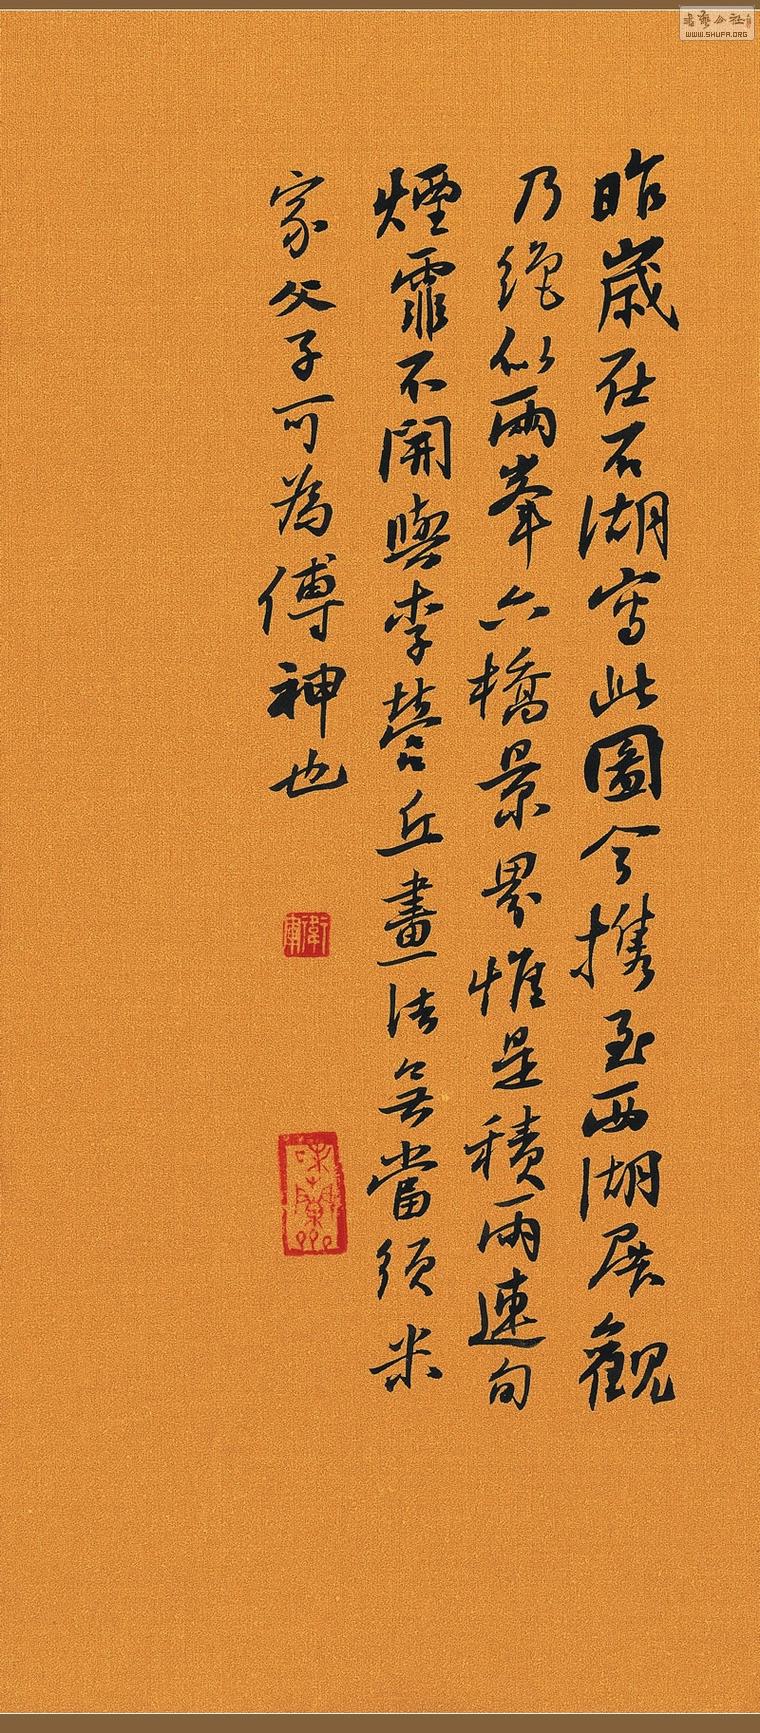 昨歲在石湖寫此圖今攜至西湖展觀
乃絶似兩峯六橋景界惟是積雨連旬
煙霏不開與李營丘畫法無當須米
家父子可為傳神也
WWW.SHUFA.ORG